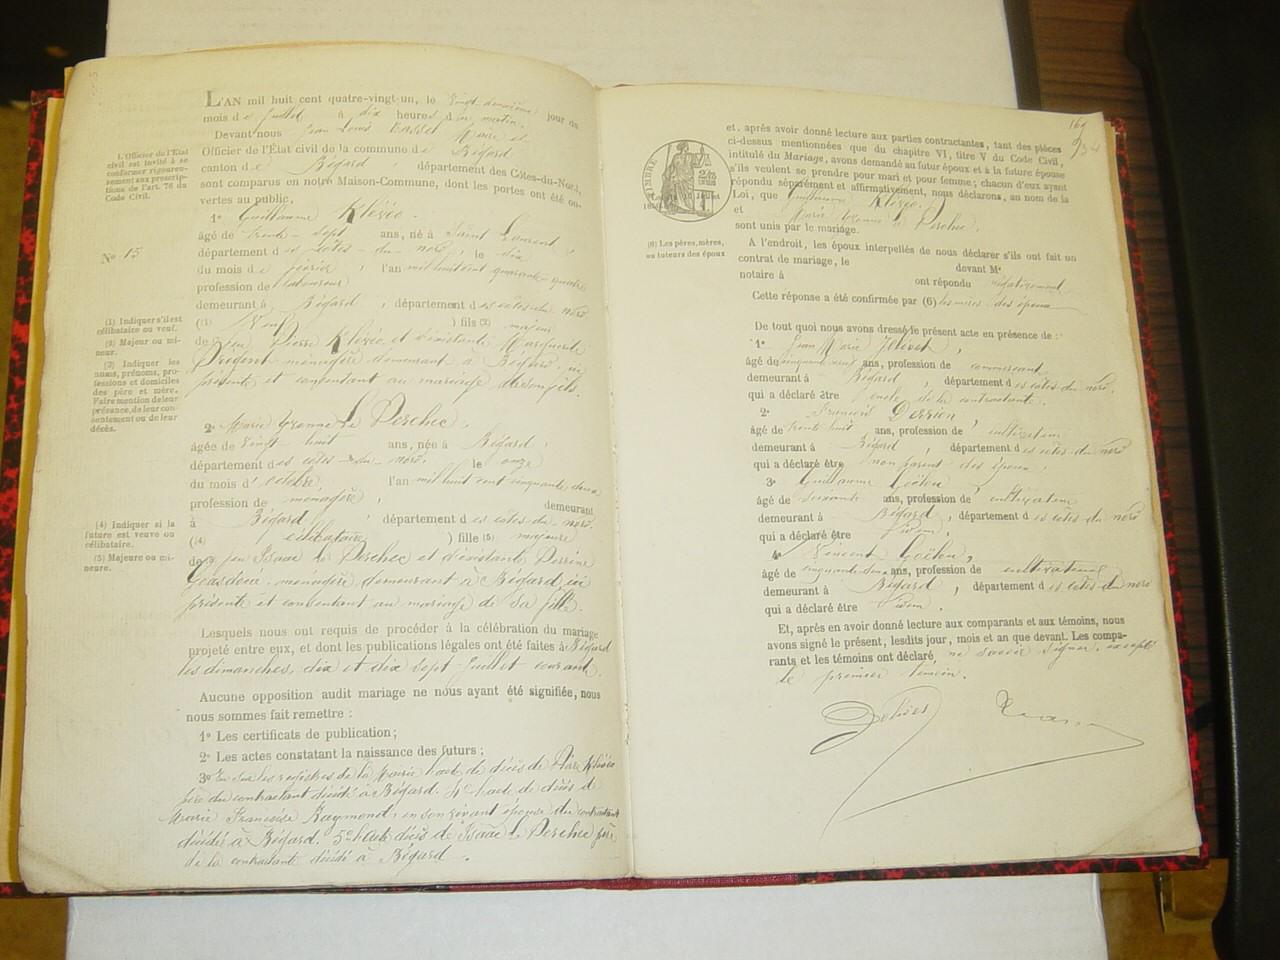 L'AN mil huit cent quatre-vingt-un, le vingt-deuxième jour du
mois de juillet à dix heures du matin.
Devant nous Jean Louis Maire et
Officier de l'État civil de la commune de Bégard
canton de Bégard, département des Côtes-du-Nord,
sont comparus en notre Maison-Commune, dont les portes ont été ou-
vertes au public,
1° Guillaume Klévéc
âgé de trente-sept ans, né à Saint Laurent,
département des côtes-du-nord, le dix
du mois de février, l'an mil huit cent quarante-quatre
profession de laboureur
demeurant à Bégard, département des côtes du nord
(1) Veuf ) fils (2) majeur
de feu Pierre Klévéc et d'existante Marguerite
Prigent ménagère demeurant à Bégard, ici
présente et consentant au mariage de son fils.
2° Marie Yvonne Le Perchec,
âgée de vingt-huit ans, née à Bégard,
département des côtes-du-nord, le onze
du mois d'octobre, l'an mil huit cent cinquante deux
profession de ménagère, demeurant
à Bégard, département des côtes du nord,
(4) célibataire ) fille (5) majeure
de feu Isaac Le Perchec et d'existante Perrine
ménagère, demeurant à Bégard, ici
présente et consentant au mariage de sa fille.
Lesquels nous ont requis de procéder à la célébration du mariage
projeté entre eux, et dont les publications légales ont été faites à Bégard
les dimanches, dix et dix sept juillet courant.
Aucune opposition audit mariage ne nous ayant été signifiée, nous
nous sommes fait remettre :
1° Les certificats de publication;
2° Les actes constatant la naissance des futurs;
3° Vu sur les registres de la Mairie l'acte de décès de Pierre Klévéc
père du contractant décédé à Bégard. 4° l'acte de décès de
Marie Françoise Raymond, en son vivant épouse du contractant
décédée à Bégard. 5° l'acte décès de Isaac Le Perchec père
de la contractante décédé à Bégard.
L'Officier de l'État
civil est invité à se
conformer rigoureu-
sement aux prescrip-
tions de l'art. 76 du
Code Civil.
N° 15
(1) Indiquer s'il est
célibataire ou veuf.
(2) Majeur ou mi-
neur.
(3) Indiquer les
noms, prénoms, pro-
fessions et domiciles
des père et mère.
Faire mention de leur
présence, de leur con-
sentement ou de leur
décès.
(4) Indiquer si la
future est veuve ou
célibataire.
(5) Majeure ou mi-
neure.
169
TIMBRE
et, après avoir donné lecture aux parties contractantes, tant des pièces
ci-dessus mentionnées que du chapitre VI, titre V du Code Civil,
intitulé du Mariage, avons demandé au futur époux et à la future épouse
s'ils veulent se prendre pour mari et pour femme; chacun d'eux ayant
répondu séparément et affirmativement, nous déclarons, au nom de la
Loi, que Guillaume Klévéc,
et Marie Yvonne Le Perchec,
sont unis par le mariage.
A l'endroit, les époux interpellés de nous déclarer s'ils ont fait un
contrat de mariage, le devant Me
notaire à ont répondu négativement
Cette réponse a été confirmée par (6) les mères des époux
(6) Les pères, mères,
ou tuteurs des époux
De tout quoi nous avons dressé le présent acte en présence de :
1° Jean Marie,
âgé de ans, profession de commerçant,
demeurant à Bégard, département des côtes du nord
qui a déclaré être l'oncle de la contractante.
2° François Derrien
âgé de trente huit ans, profession de cultivateur
demeurant à Bégard, département des côtes du nord
qui a déclaré être non parent des époux,
3° Guillaume
âgé de soixante ans, profession de cultivateur
demeurant à Bégard, département des côtes du nord
qui a déclaré être idem.
4° Vincent
âgé de ans, profession de cultivateur
demeurant à Bégard, département des côtes du nord
qui a déclaré être idem.
Et, après en avoir donné lecture aux comparants et aux témoins, nous
avons signé le présent, lesdits jour, mois et an que devant. Les compa-
rants et les témoins ont déclaré ne savoir signer, excepté
le premier témoin.